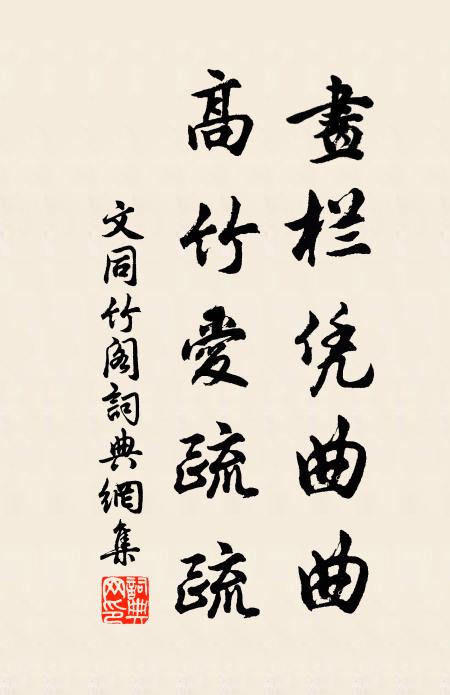 畫栏凭曲曲
高竹愛疏疏
文同竹阁詞典網集
詞典网印